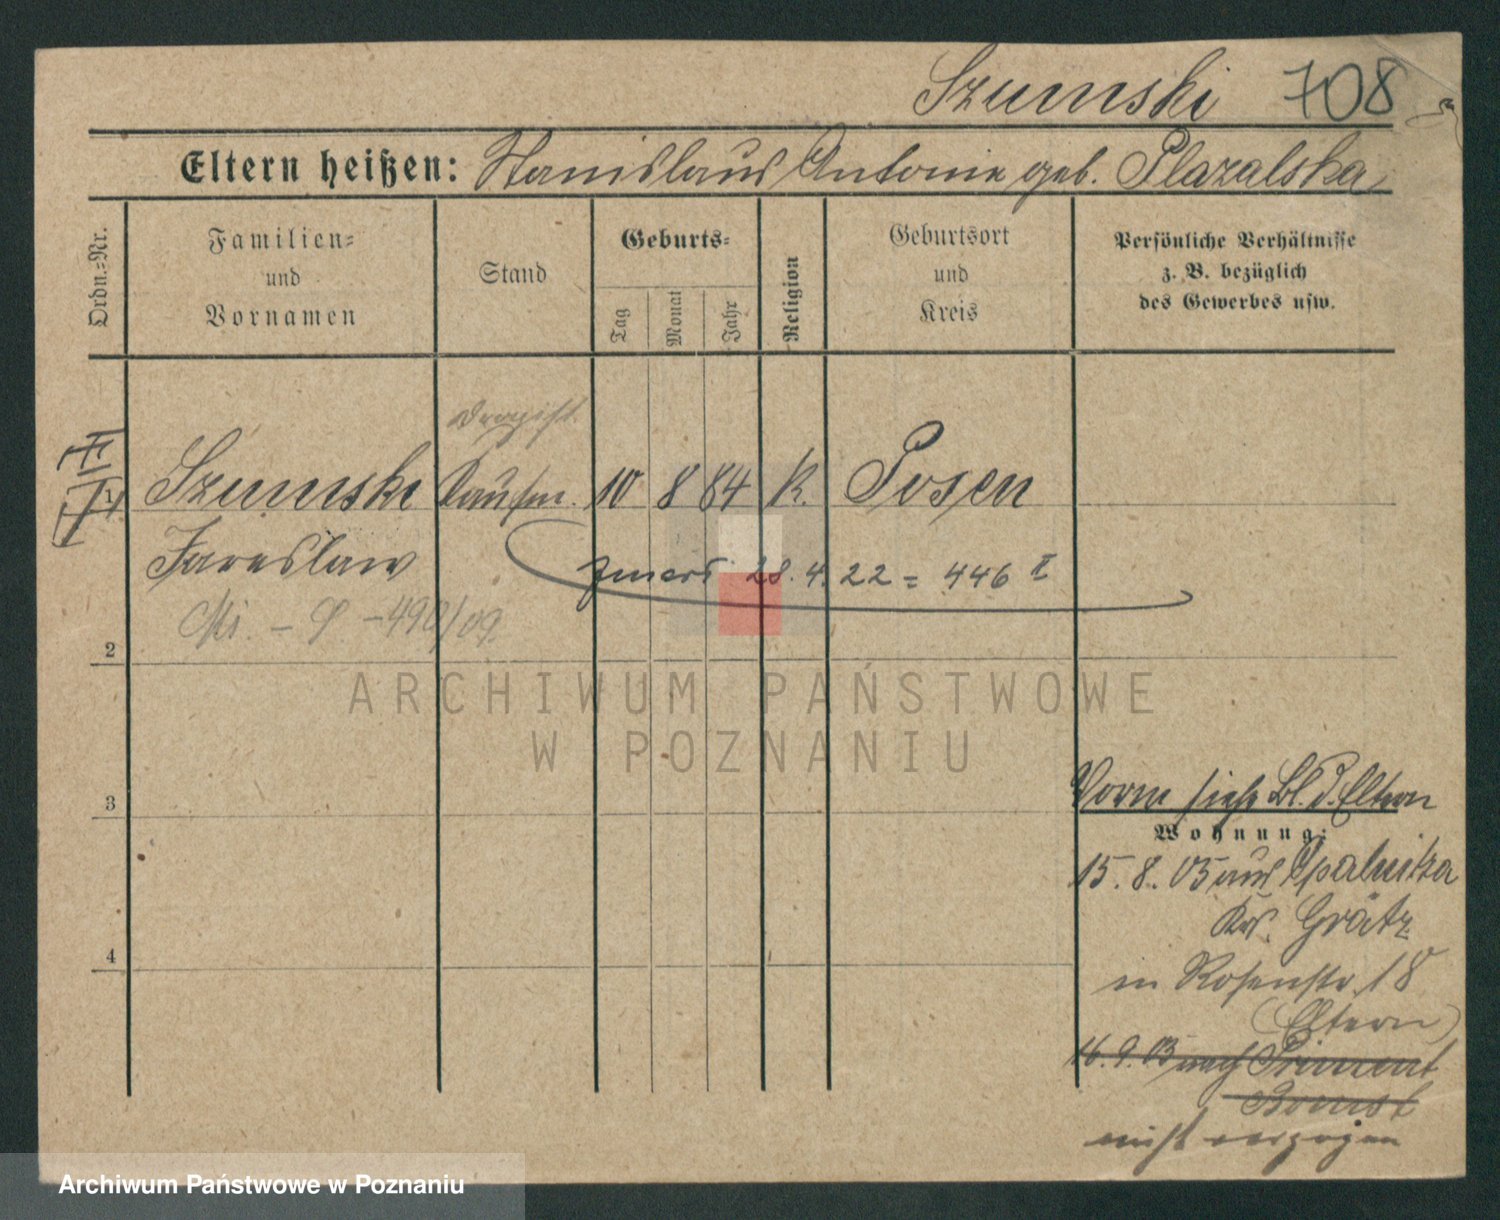 Szumski 708
Eltern heißen: Stanislaus Antonie geb. Plazalska
Ordn.-Nr.
Familien-
und
Vornamen
Stand
Geburts-
Tag
Monat
Jahr
Religion
Geburtsort
und
Kreis
Persönliche Verhältnisse
z. B. bezüglich
des Gewerbes usw.
Drogist.
1 Szumski Kaufm. 10 8 84 K. Posen
Jareslaw
zmarł 28. 4. 22 = 446 II
- 490/09.
2
ARCHIWUM PAŃSTWOWE
W POZNANIU
3
Vorne siehe Bl. d. Eltern
Wohnung:
15. 8. 05 aus Opalenitza
Krs. Grätz
4
in Rosenstr 18
(Eltern)
16. 9. 03 nach Priment
Bomst
nicht verzogen
Archiwum Państwowe w Poznaniu